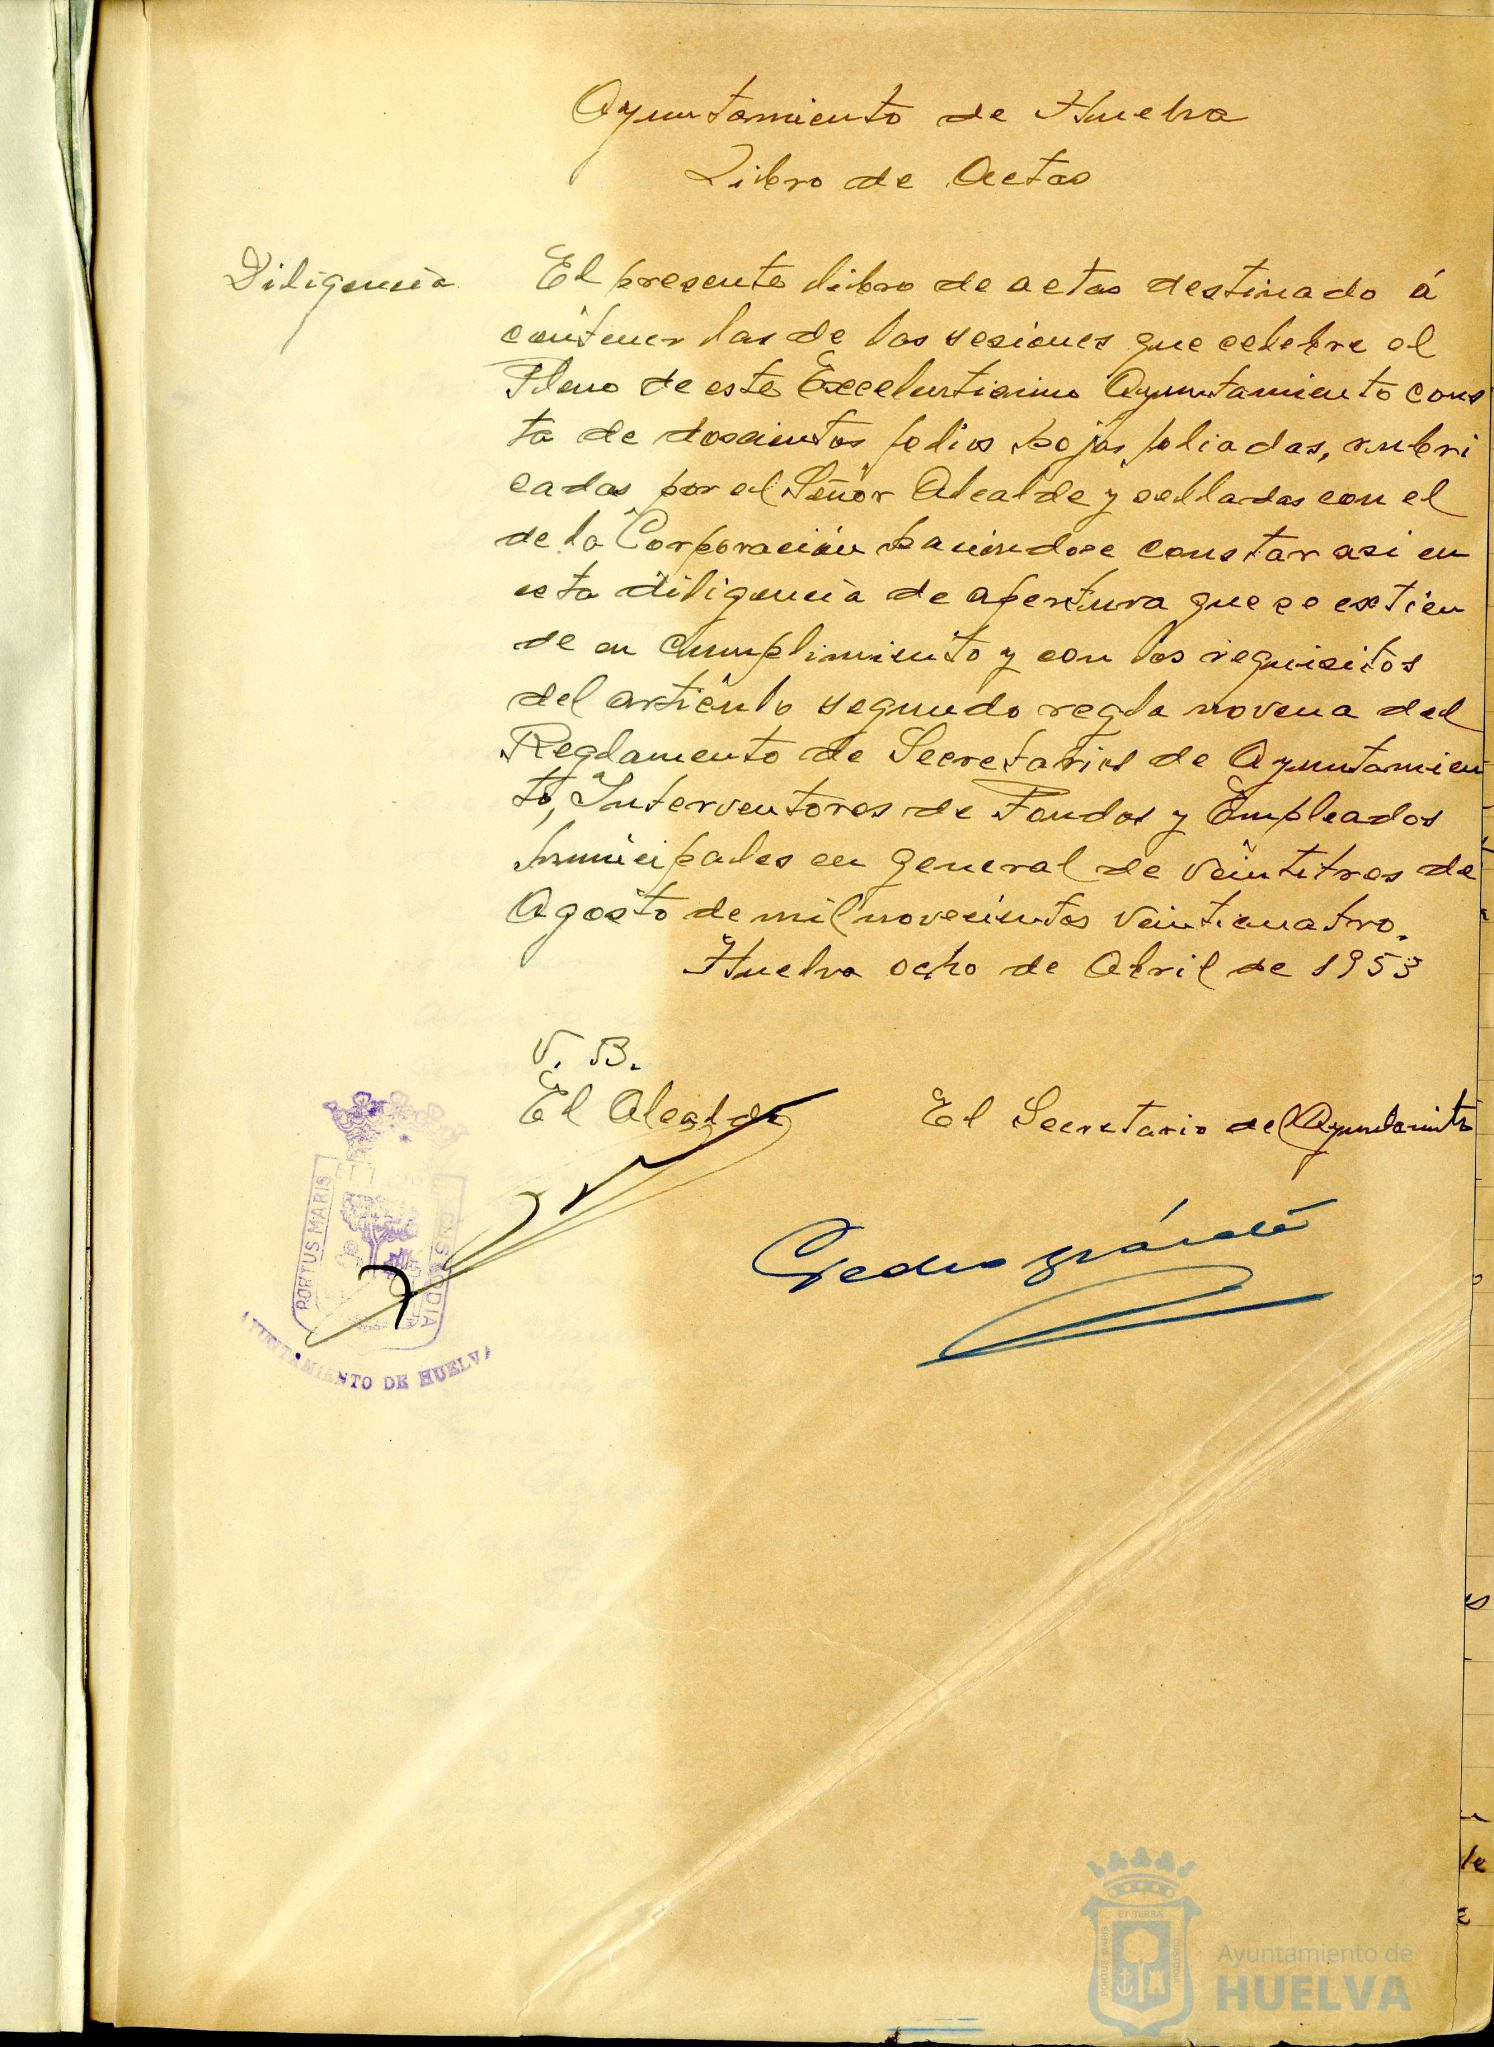 Ayuntamiento de Huelva
Libro de Actas
Diligencia El presente libro de actas destinado á
contener las de las sesiones que celebre el
Pleno de este Excelentisimo Ayuntamiento cons
ta de doscientos folios hojas foliadas, rubri
cadas por el Señor Alcalde y selladas con el
de la Corporación haciéndose constar asi en
esta diligencia de apertura que se extien
de en cumplimiento y con los requisitos
del artículo segundo regla novena del
Reglamento de Secretarios de Ayuntamien
to, Interventores de Fondos y Empleados
Municipales en general de veintitres de
Agosto de mil novecientos veinticuatro.
Huelva ocho de Abril de 1953
V. B.
El Alcalde El Secretario del Ayuntamiento
PORTUS MARIS CUSTODIA
AYUNTAMIENTO DE HUELVA
Pedro
Ayuntamiento de
HUELVA